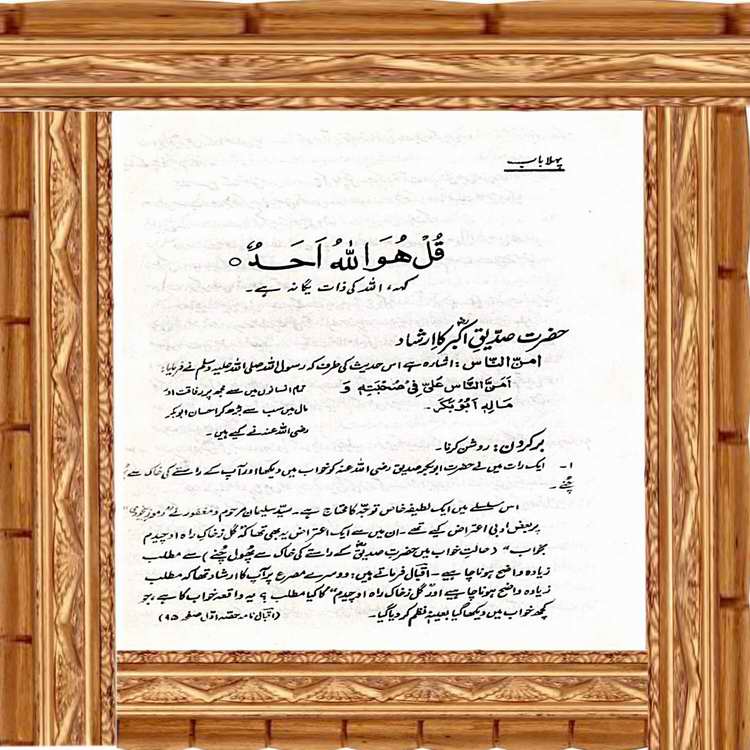 پہلا باب
قُلْ هُوَ اللهُ اَحَدٌ ۝
کہہ، اللہ کی ذات یگانہ ہے۔
حضرت صدیقِ اکبرؓ کا ارشاد
امنّ الناس: اشارہ ہے اس حدیث کی طرف کہ رسول اللہ صلی اللہ علیہ وسلم نے فرمایا:
اَمَنَّ النَّاسِ عَلَیَّ فِیْ صُحْبَتِهٖ وَ تمام انسانوں میں سے مجھ پر رفاقت اور
مَالِهٖ اَبُوْبَکَر۔ مال میں سب سے بڑھ کر احسان ابوبکر
رضی اللہ عنہ نے کیے ہیں۔
برکردن: روشن کرنا۔
۱۔ ایک رات میں نے حضرت ابوبکر صدیق رضی اللہ عنہ کو خواب میں دیکھا اور آپ کے راستے کی خاک سے
چُنے۔
اس سلسلے میں ایک لطیفہ خاص توجہ کا محتاج ہے۔ سید سلیمان مرحوم و مغفور نے "رموز بیخودی"
پر بعض ادبی اعتراض کیے تھے۔ ان میں سے ایک اعتراض یہ بھی تھا کہ "گل ز خاک راہ او چیدم
بخواب" (حالتِ خواب میں حضرت صدیقؓ کے راستے کی خاک سے پھول چُنے) سے مطلب
زیادہ واضح ہونا چاہیے۔ اقبال فرماتے ہیں: دوسرے مصرع پر آپ کا ارشاد تھا کہ مطلب
زیادہ واضح ہونا چاہیے اور "گل ز خاک راہ او چیدم" کا کیا مطلب؟ یہ واقعہ خواب کا ہے جو
کچھ خواب میں دیکھا گیا بعینہٖ نظم کر دیا گیا۔ (اقبال نامہ حصہ اول صفحہ ۹۵)